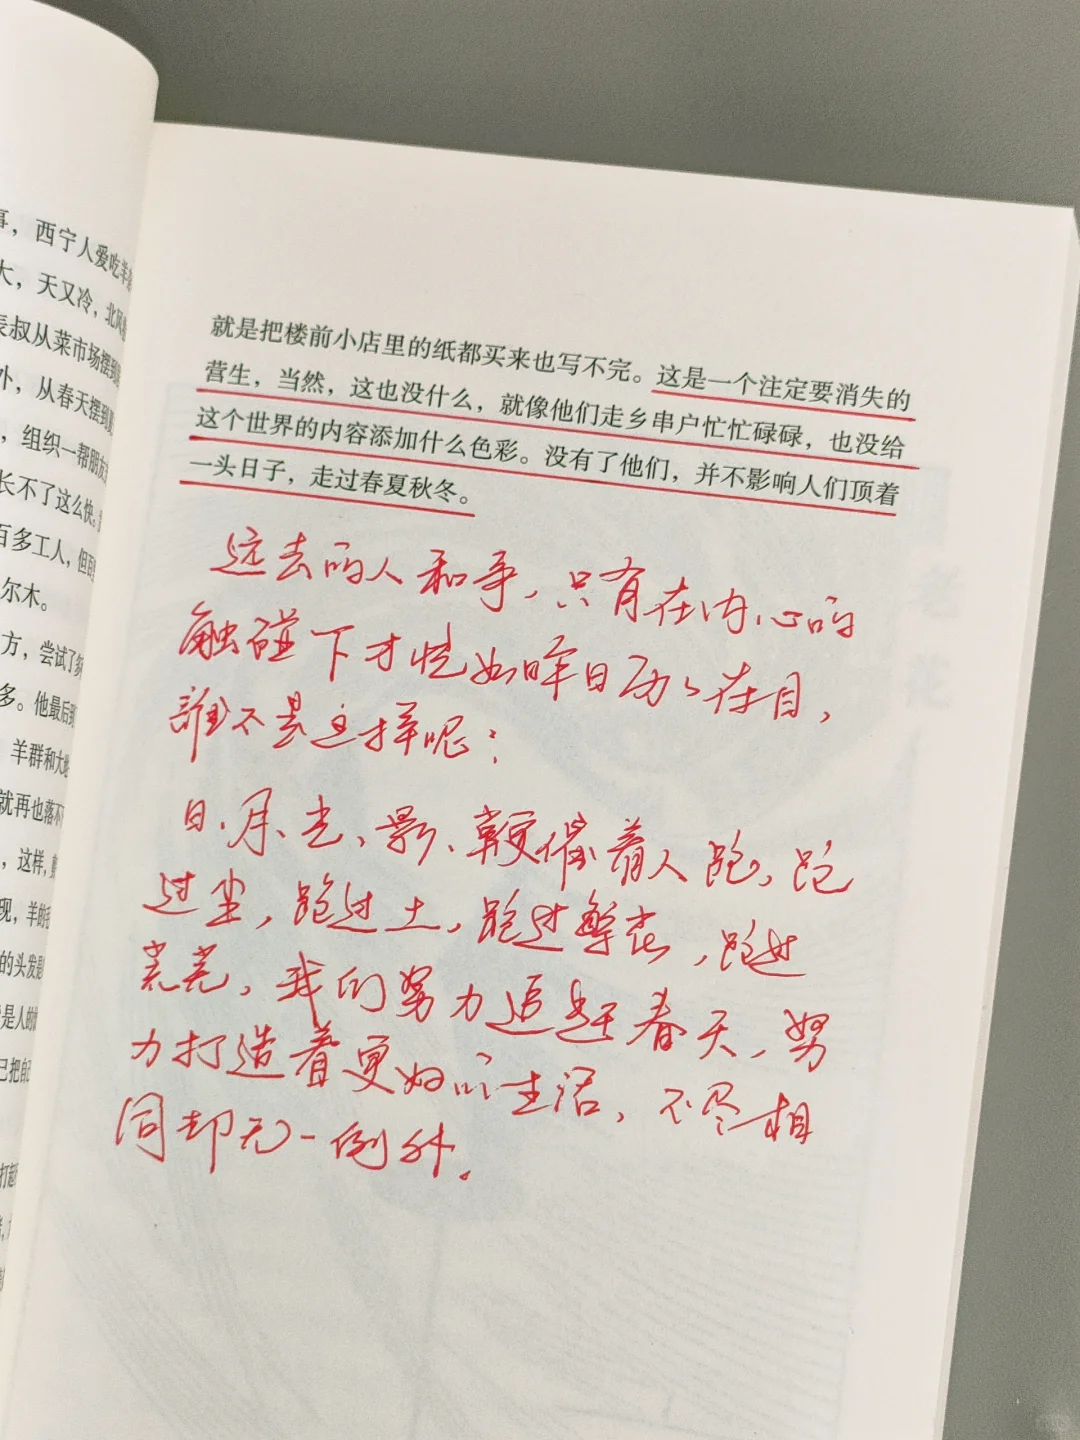 事，西宁人爱吃羊
大，天又冷，北风
表叔从菜市场摆到
外，从春天摆到
，组织一帮朋友
长不了这么快。
百多工人，但
尔木。
方，尝试了多
多。他最后到
羊群和大地
就再也落不
，这样，剪
现，羊的毛
的头发是
是人的
己把自
打起
就是把楼前小店里的纸都买来也写不完。这是一个注定要消失的
营生，当然，这也没什么，就像他们走乡串户忙忙碌碌，也没给
这个世界的内容添加什么色彩。没有了他们，并不影响人们顶着
一头日子，走过春夏秋冬。
远去的人和事，只有在内心的
触碰下才恍如昨日历々在目，
谁不是这样呢；
日、月、光、影、鞭催着人跑，跑
过尘，跑过土，跑过繁花，跑过
荒芜，我们努力追赶春天，努
力打造着更好的生活，不尽相
同却无一例外。